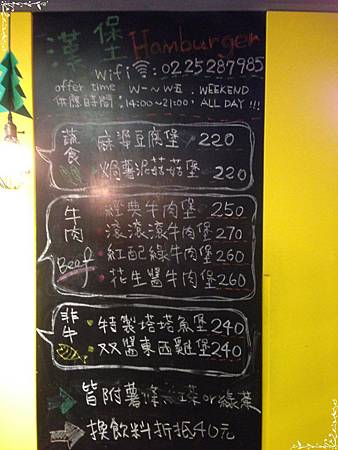 漢堡 Hamburger
wifi : 0225287985
offer time W一～W五 . WEEKEND
供應時間 : 14:00~21:00 , ALL DAY !!!
蔬食
麻婆豆腐堡 220
焗薯泥菇菇堡 220
牛肉 Beef
經典牛肉堡 250
滾滾滾牛肉堡 270
紅配綠牛肉堡 260
花生醬牛肉堡 260
非牛
特製塔塔魚堡 240
双醬東西雞堡 240
皆附薯條 紅茶or綠茶
換飲料折抵40元